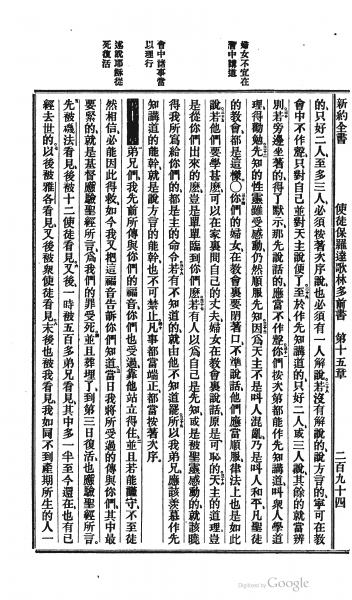 新約全書　使徒保羅達歌林多前書　第十五章　二百九十四
婦女不宜在
會中講道
會中諸事當
以理行
述說耶穌從
死復活
的只好二人至多三人必須按著次序說也必須有一人解說若沒有解說的說方言的寧可在教
會中不作聲只對自己並對天主說便了至於作先知講道的只好二人或三人說其餘的就當辨
別若旁邊坐著的得了默示那先說話的應當不作聲你們按次第都能作先知講道叫衆人學道
理得勸勉先知的性靈雖受感動仍然順服先知因爲天主不是叫人混亂乃是叫人和平凡聖徒
的教會都是這樣○你們的婦女在教會裏要閉著口不準說話他們應當順服律法上也是如此
說若他們要學甚麽可以在家裏問自己的丈夫婦女在教會裏說話原是可恥的天主的道理豈
是從你們出來的麽豈是單單臨到你們麽若有人以爲自己是先知或是被聖靈感動的就該曉
得我所寫給你們的都是主的命令若有不知道的就由他不知道罷所以我弟兄應該羨慕作先
知講道的能幹就是說方言的能幹也不可禁止凡事都當端正都當按著次序
弟兄們我先前所傳與你們的福音你們也受過靠他站立得住並且若能謹守不至徒
然相信必能因此得救如今我又把這福音告訴你們知道當日我將所受過的傳與你們其中最
要緊的就是基督應驗聖經所言爲我們的罪受死並且葬埋了到第三日復活也應驗聖經所言
先被磯法看見後被十二使徒看見又後一時被五百多弟兄看見其中多一半至今還在也有已
經去世的以後被雅各看見又後被衆使徒看見末後也被我看見我如同不到產期所生的人一
Digitized by Google